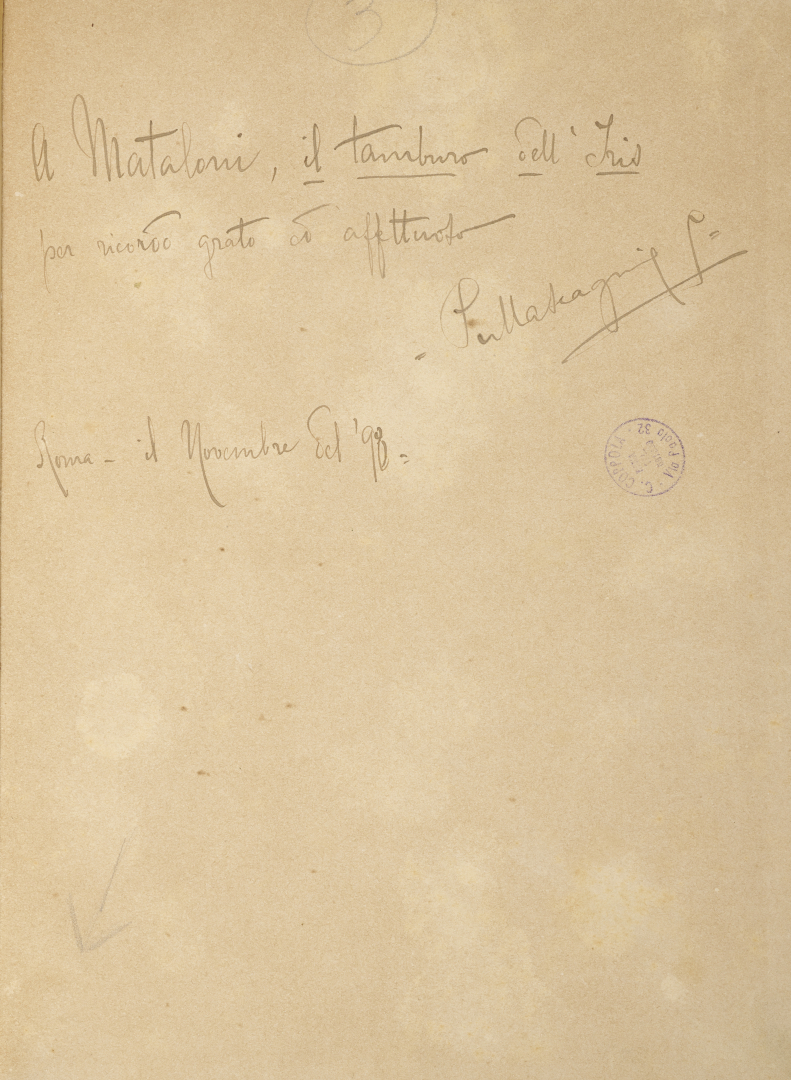 3
A Mataloni, il tamburo dell'Iris
per ricordo grato ed affettuoso
PMascagni
Roma - il Novembre del '98 =